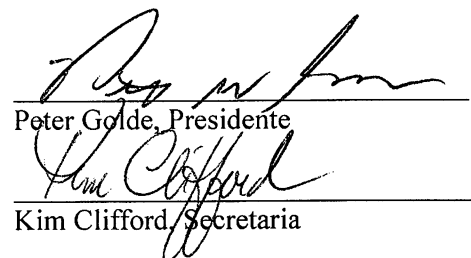 Peter Golde, Presidente
Kim Clifford
Kim Clifford, Secretaria